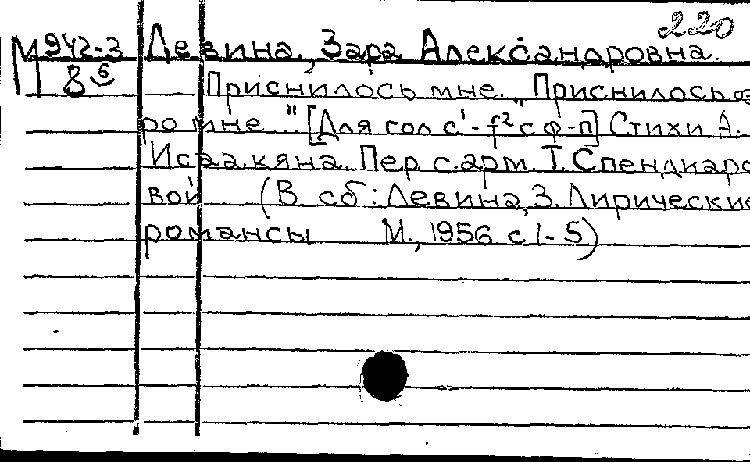 220
М 942-3 Левина, Зара Александровна.
8 Приснилось мне. „Приснилось оз
ро мне..." [Для гол с¹-f² с ф-п] Стихи А.
Исаакяна. Пер с арм Т. Спендиаро
вой (В сб: Левина, З. Лирические
романсы М., 1956 с 1-5)